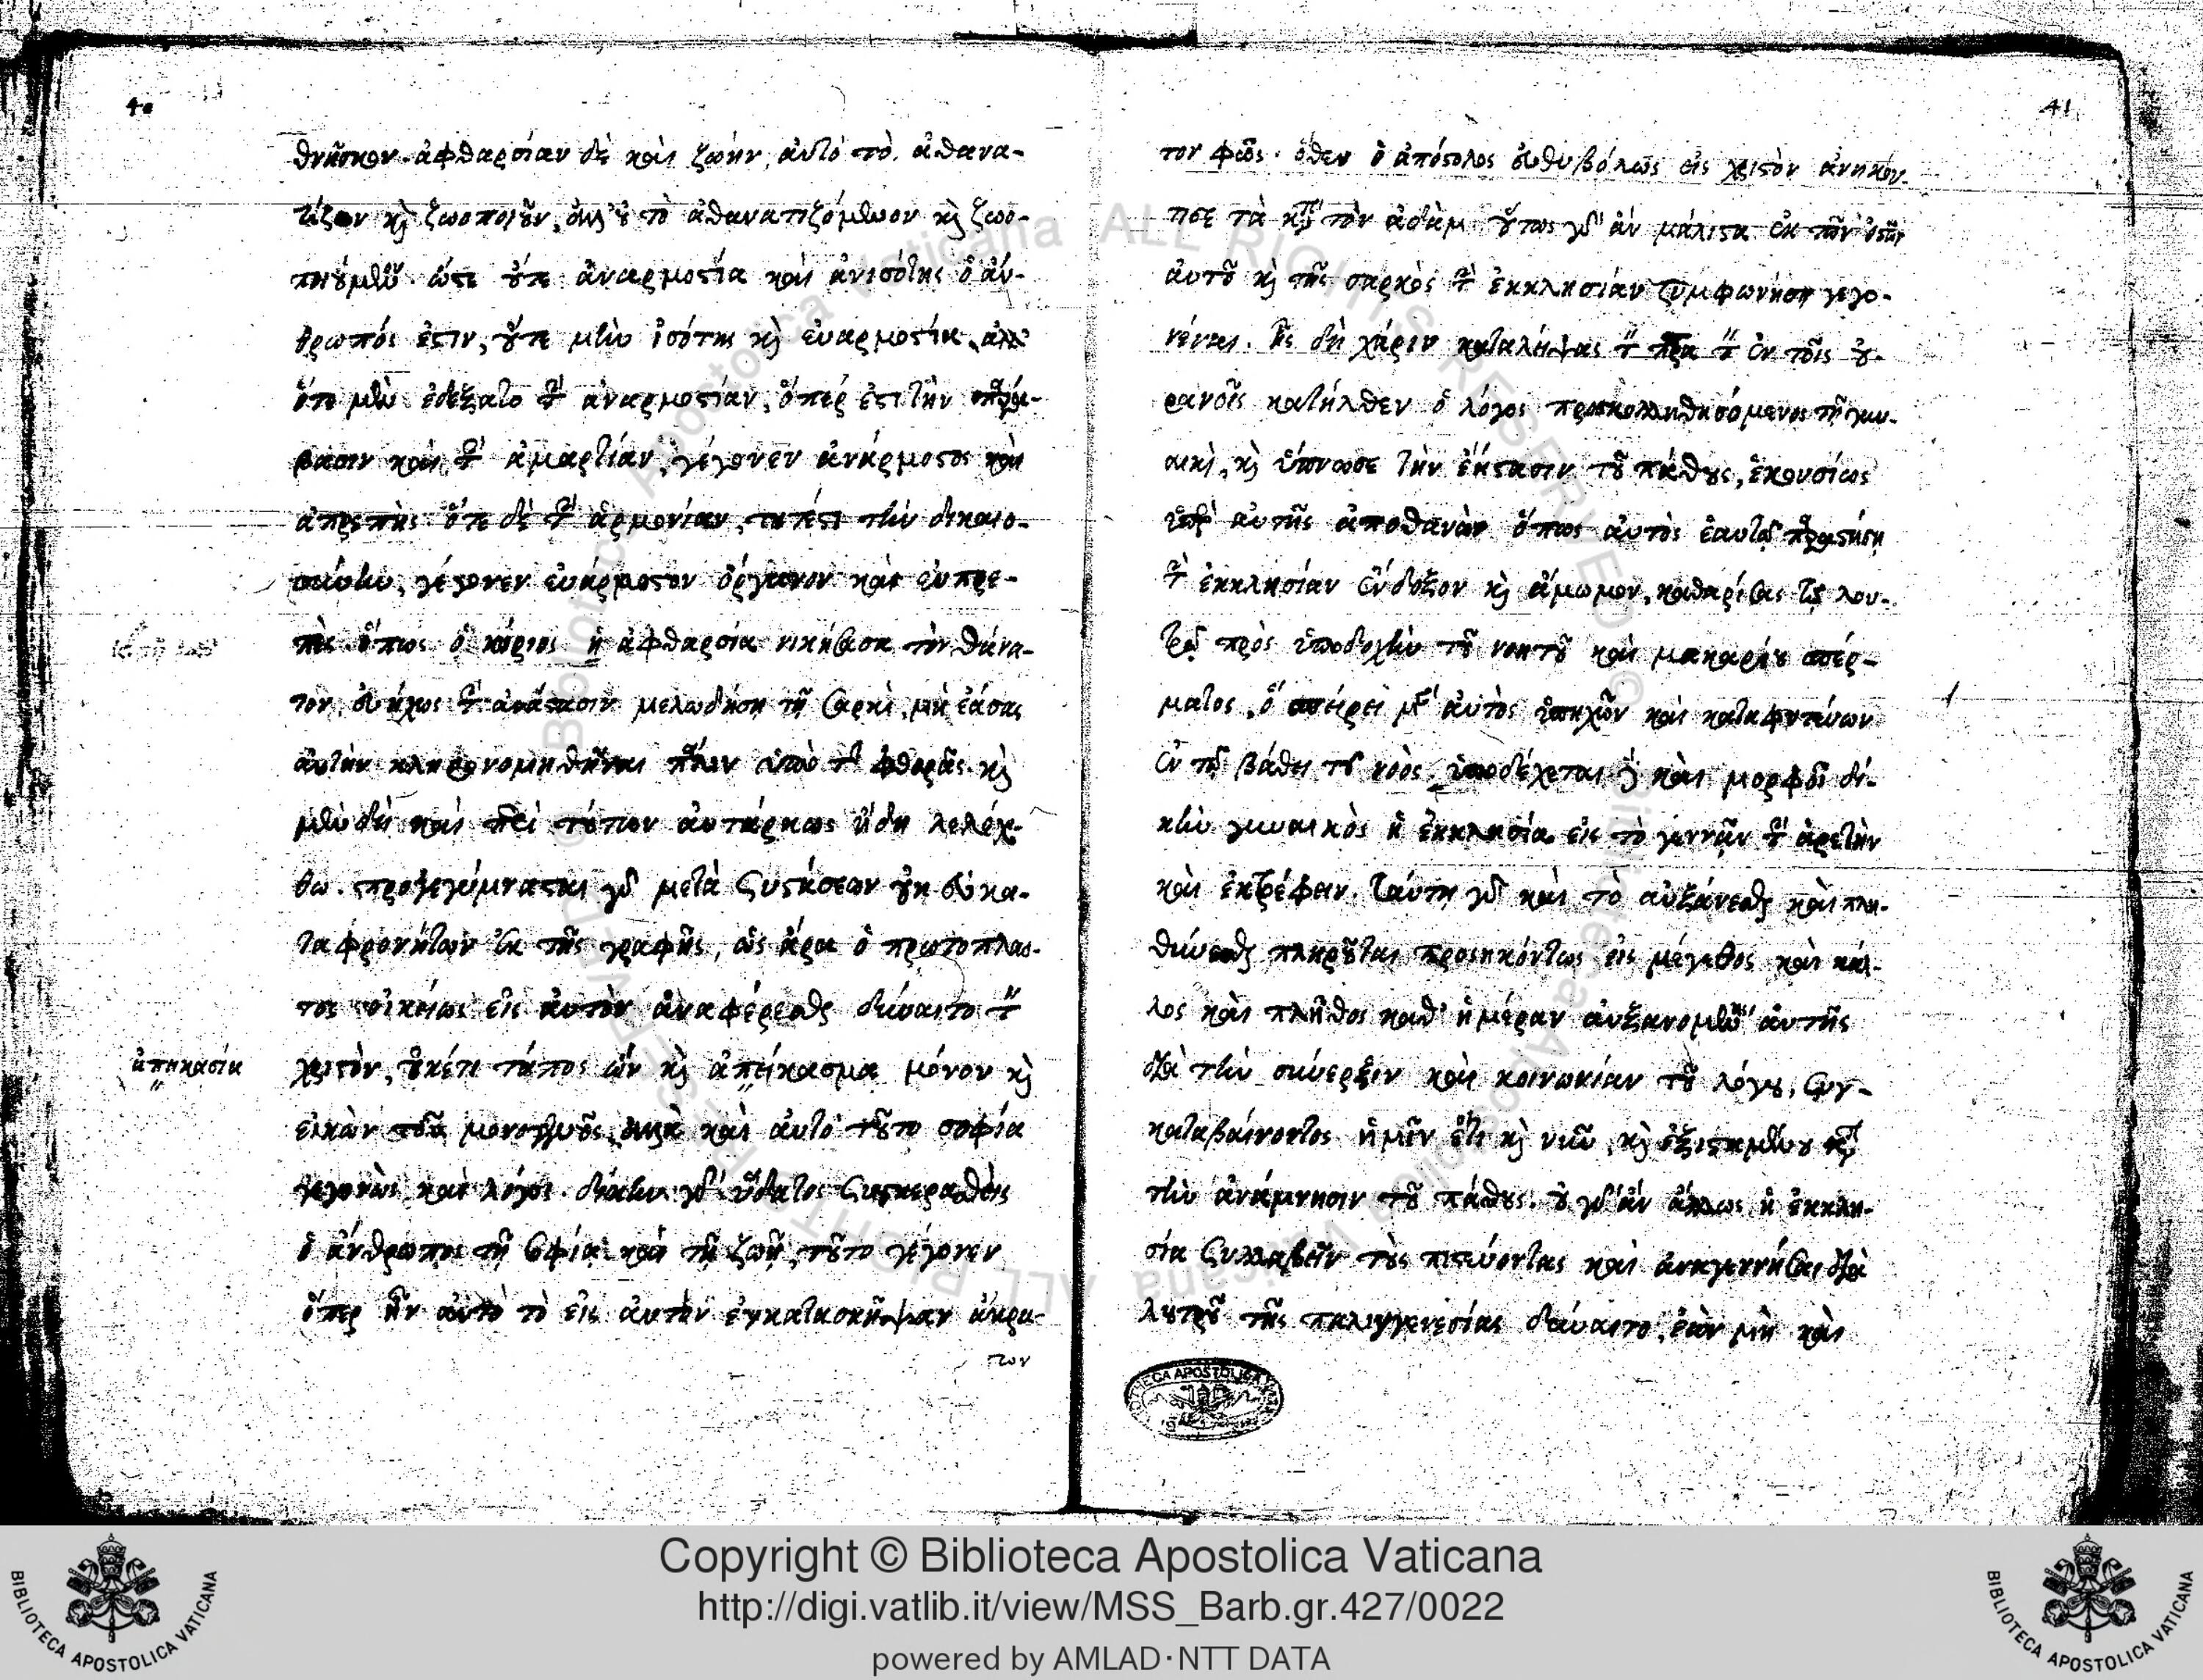 40
θνῆσκον. ἀφθαρσίαν δὲ καὶ ζωὴν, αὐτὸ τὸ ἀθανα-
τίζον κ̀ ζωοποιοῦν, ἀλλ' οὐ τὸ ἀθανατιζόμενον κ̀ ζωο-
ποιούμενον. ὥστε οὔτε ἀναρμοστία καὶ ἀνισότης ὁ ἄν-
θρωπός ἐστιν, οὔτε μὴν ἰσότης κ̀ εὐαρμοστία. ἀλλ'
ὅτε μὲν ἐδέξατο τὴν ἀναρμοστίαν, ὅπέρ ἐστι τὴν παρά-
βασιν καὶ τὴν ἁμαρτίαν, γέγονεν ἀνάρμοστος καὶ
ἀπρεπὴς ὅτε δὲ τὴν ἁρμονίαν, τουτέστι τὴν δικαιο-
σύνην, γέγονεν εὐάρμοστον ὄργανον καὶ εὐπρε-
πὲς. ὅπως ὁ κύριος ἡ ἀφθαρσία νικήσασα τὸν θάνα-
τον, εὐήχως τὴν ἀνάστασιν μελωδήσῃ τῇ σαρκὶ, μὴ ἐάσας
αὐτὴν κληρονομηθῆναι πάλιν ὑπὸ τῆς φθορᾶς. κ̀
μὲν δὴ καὶ περὶ τούτων αὐτάρκως ἤδη λελέχ-
θω. προγεγύμνασται γὰρ μετὰ συστάσεων οὐκ εὐκα-
ταφρονήτων ἐκ τῆς γραφῆς, ὡς ἄρα ὁ πρωτόπλασ-
τος οἰκείως εἰς αὐτὸν ἀναφέρεσθαι δύναιτο τὸν
χριστὸν, οὐκέτι τύπος ὢν κ̀ ἀπείκασμα μόνον κ̀
ἀπηκασία
εἰκὼν τοῦ μονογενοῦς, ἀλλὰ καὶ αὐτὸ τοῦτο σοφία
γεγονὼς καὶ λόγος. δίκην γὰρ ὕδατος συγκερασθεὶς
ὁ ἄνθρωπος τῇ σοφίᾳ καὶ τῇ ζωῇ, τοῦτο γέγονεν
ὅπερ ἦν αὐτὸ τὸ εἰς αὐτὸν ἐγκατασκῆψαν ἄκρα-
τον
41
τον φῶς. ὅθεν ὁ ἀπόστολος εὐθυβόλως εἰς χριστὸν ἀνηκόν-
τισε τὰ κατὰ τὸν ἀδὰμ οὕτως γὰρ ἂν μάλιστα ἐκ τῶν ὀστῶν
αὐτοῦ κ̀ τῆς σαρκὸς τὴν ἐκκλησίαν συμφωνήσῃ γεγο-
νέναι. ἧς δὴ χάριν καταλείψας τὸν πρα τὸν ἐν τοῖς οὐ-
ρανοῖς κατῆλθεν ὁ λόγος προσκολληθησόμενος τῇ γυν-
αικὶ, κ̀ ὕπνωσε τὴν ἔκστασιν τοῦ πάθους, ἑκουσίως
ὑπὲρ αὐτῆς ἀποθανὼν ὅπως αὐτὸς ἑαυτῷ παραστήσῃ
τὴν ἐκκλησίαν ἔνδοξον κ̀ ἄμωμον, καθαρίσας τῷ λου-
τρῷ πρὸς ὑποδοχὴν τοῦ νοητοῦ καὶ μακαρίου σπέρ-
ματος, ὃ σπείρει μὲν αὐτὸς ὑπηχῶν καὶ καταφυτεύων
ἐν τῷ βάθει τοῦ νοὸς, ὑποδέχεται δὲ καὶ μορφοῖ δί-
κην γυναικὸς ἡ ἐκκλησία εἰς τὸ γεννᾷν τὴν ἀρετὴν
καὶ ἐκτρέφειν. ταύτῃ γὰρ καὶ τὸ αὐξάνεσθε καὶ πλη-
θύνεσθε πληροῦται προσηκόντως εἰς μέγεθος καὶ κάλ-
λος καὶ πλῆθος καθ' ἡμέραν αὐξανομένης αὐτῆς
διὰ τὴν σύνερξιν καὶ κοινωνίαν τοῦ λόγου, συγ-
καταβαίνοντος ἡμῖν ἔτι κ̀ νῦν, κ̀ ἐξισταμένου κατὰ
τὴν ἀνάμνησιν τοῦ πάθους. οὐ γὰρ ἂν ἄλλως ἡ ἐκκλη-
σία συλλαβεῖν τοὺς πιστεύοντας καὶ ἀναγεννῆσαι διὰ
λουτροῦ τῆς παλιγγενεσίας δύναιτο, ἐὰν μὴ καὶ
Copyright © Biblioteca Apostolica Vaticana
http://digi.vatlib.it/view/MSS_Barb.gr.427/0022
powered by AMLAD·NTT DATA
BIBLIOTECA APOSTOLICA VATICANA
BIBLIOTECA APOSTOLICA VATICANA